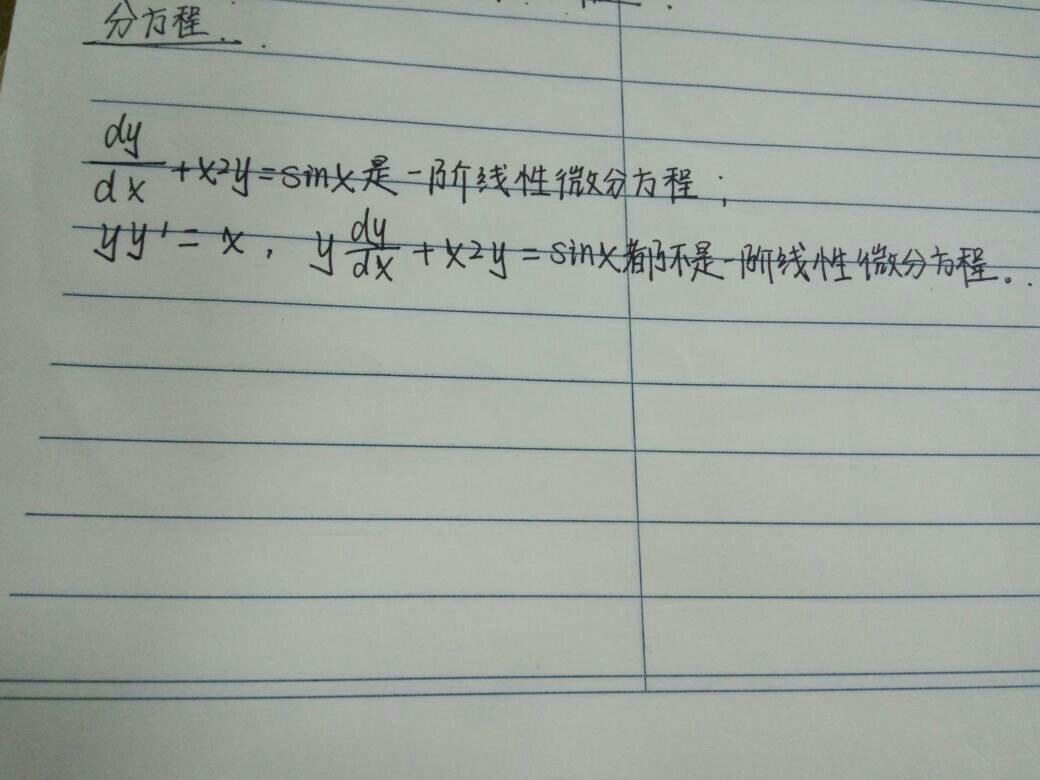 分方程..
dy/dx + x2y = sinx 是一阶线性微分方程;
yy' = x, y dy/dx + x2y = sinx 都不是一阶线性微分方程。.